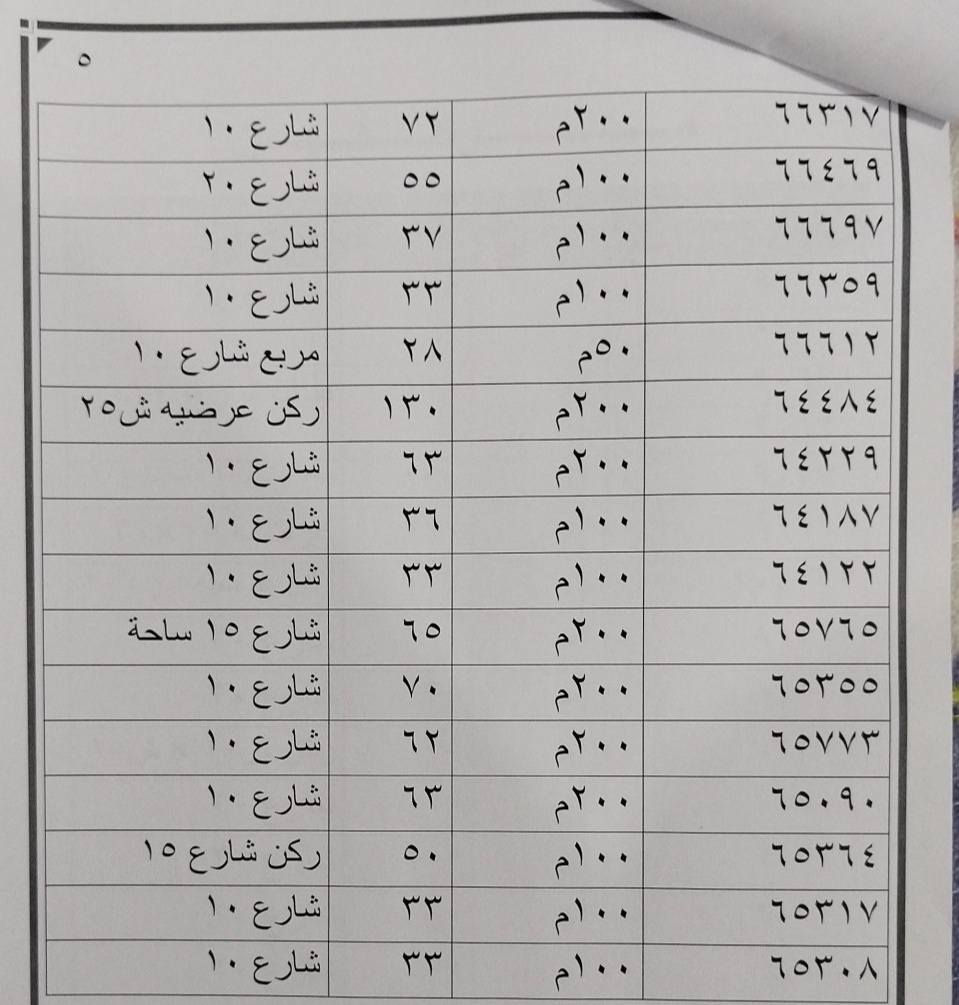 ٥
٦٦٣١٧ ٢٠٠م ٧٢ شارع ١٠
٦٦٤٦٩ ١٠٠م ٥٥ شارع ٢٠
٦٦٦٩٧ ١٠٠م ٣٧ شارع ١٠
٦٦٣٥٩ ١٠٠م ٣٣ شارع ١٠
٦٦٦١٢ ٥٠م ٢٨ مربع شارع ١٠
٦٤٤٨٤ ٢٠٠م ١٣٠ ركن عرضيه ش٢٥
٦٤٢٢٩ ٢٠٠م ٦٣ شارع ١٠
٦٤١٨٧ ١٠٠م ٣٦ شارع ١٠
٦٤١٢٢ ١٠٠م ٣٣ شارع ١٠
٦٥٧٦٥ ٢٠٠م ٦٥ شارع ١٥ ساحة
٦٥٣٥٥ ٢٠٠م ٧٠ شارع ١٠
٦٥٧٧٣ ٢٠٠م ٦٢ شارع ١٠
٦٥٠٩٠ ٢٠٠م ٦٣ شارع ١٠
٦٥٣٦٤ ١٠٠م ٥٠ ركن شارع ١٥
٦٥٣١٧ ١٠٠م ٣٣ شارع ١٠
٦٥٣٠٨ ١٠٠م ٣٣ شارع ١٠